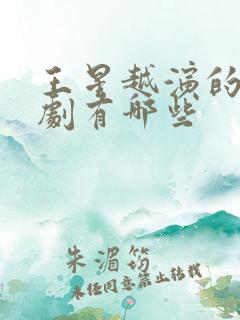 王星越演的
劇有哪些
朱湄筠
未經同意禁止轉載